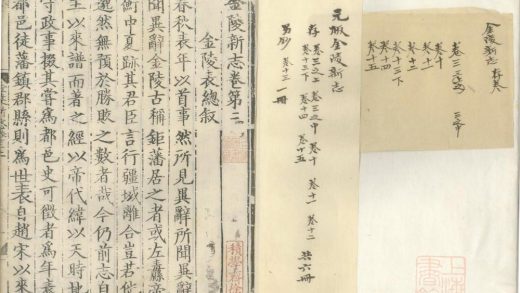 金陵新志 存卷
卷十
卷十一
卷十二
卷十三下
卷十四
卷十五
元板金陵新志
存 卷三之上 卷三之中 卷十 卷十一 卷十二
卷十三下 卷十四 卷十五 共六冊
另鈔 卷十三 一冊
金陵新志卷第三
金陵表總叙
春秋表年以首事然所見異辭所聞異辭
聞異辭金陵古稱鉅藩居之者或左纛帝
衡中夏跡其君臣言行疆域離合豈君
邈然無預於勝敗之數者哉今仍前志自
主以來譜而著之經以帝代緯以天時地
守政事掇其嘗爲都邑史可徵者爲年表
都邑徒藩鎮郡縣則爲世表自趙宋以來